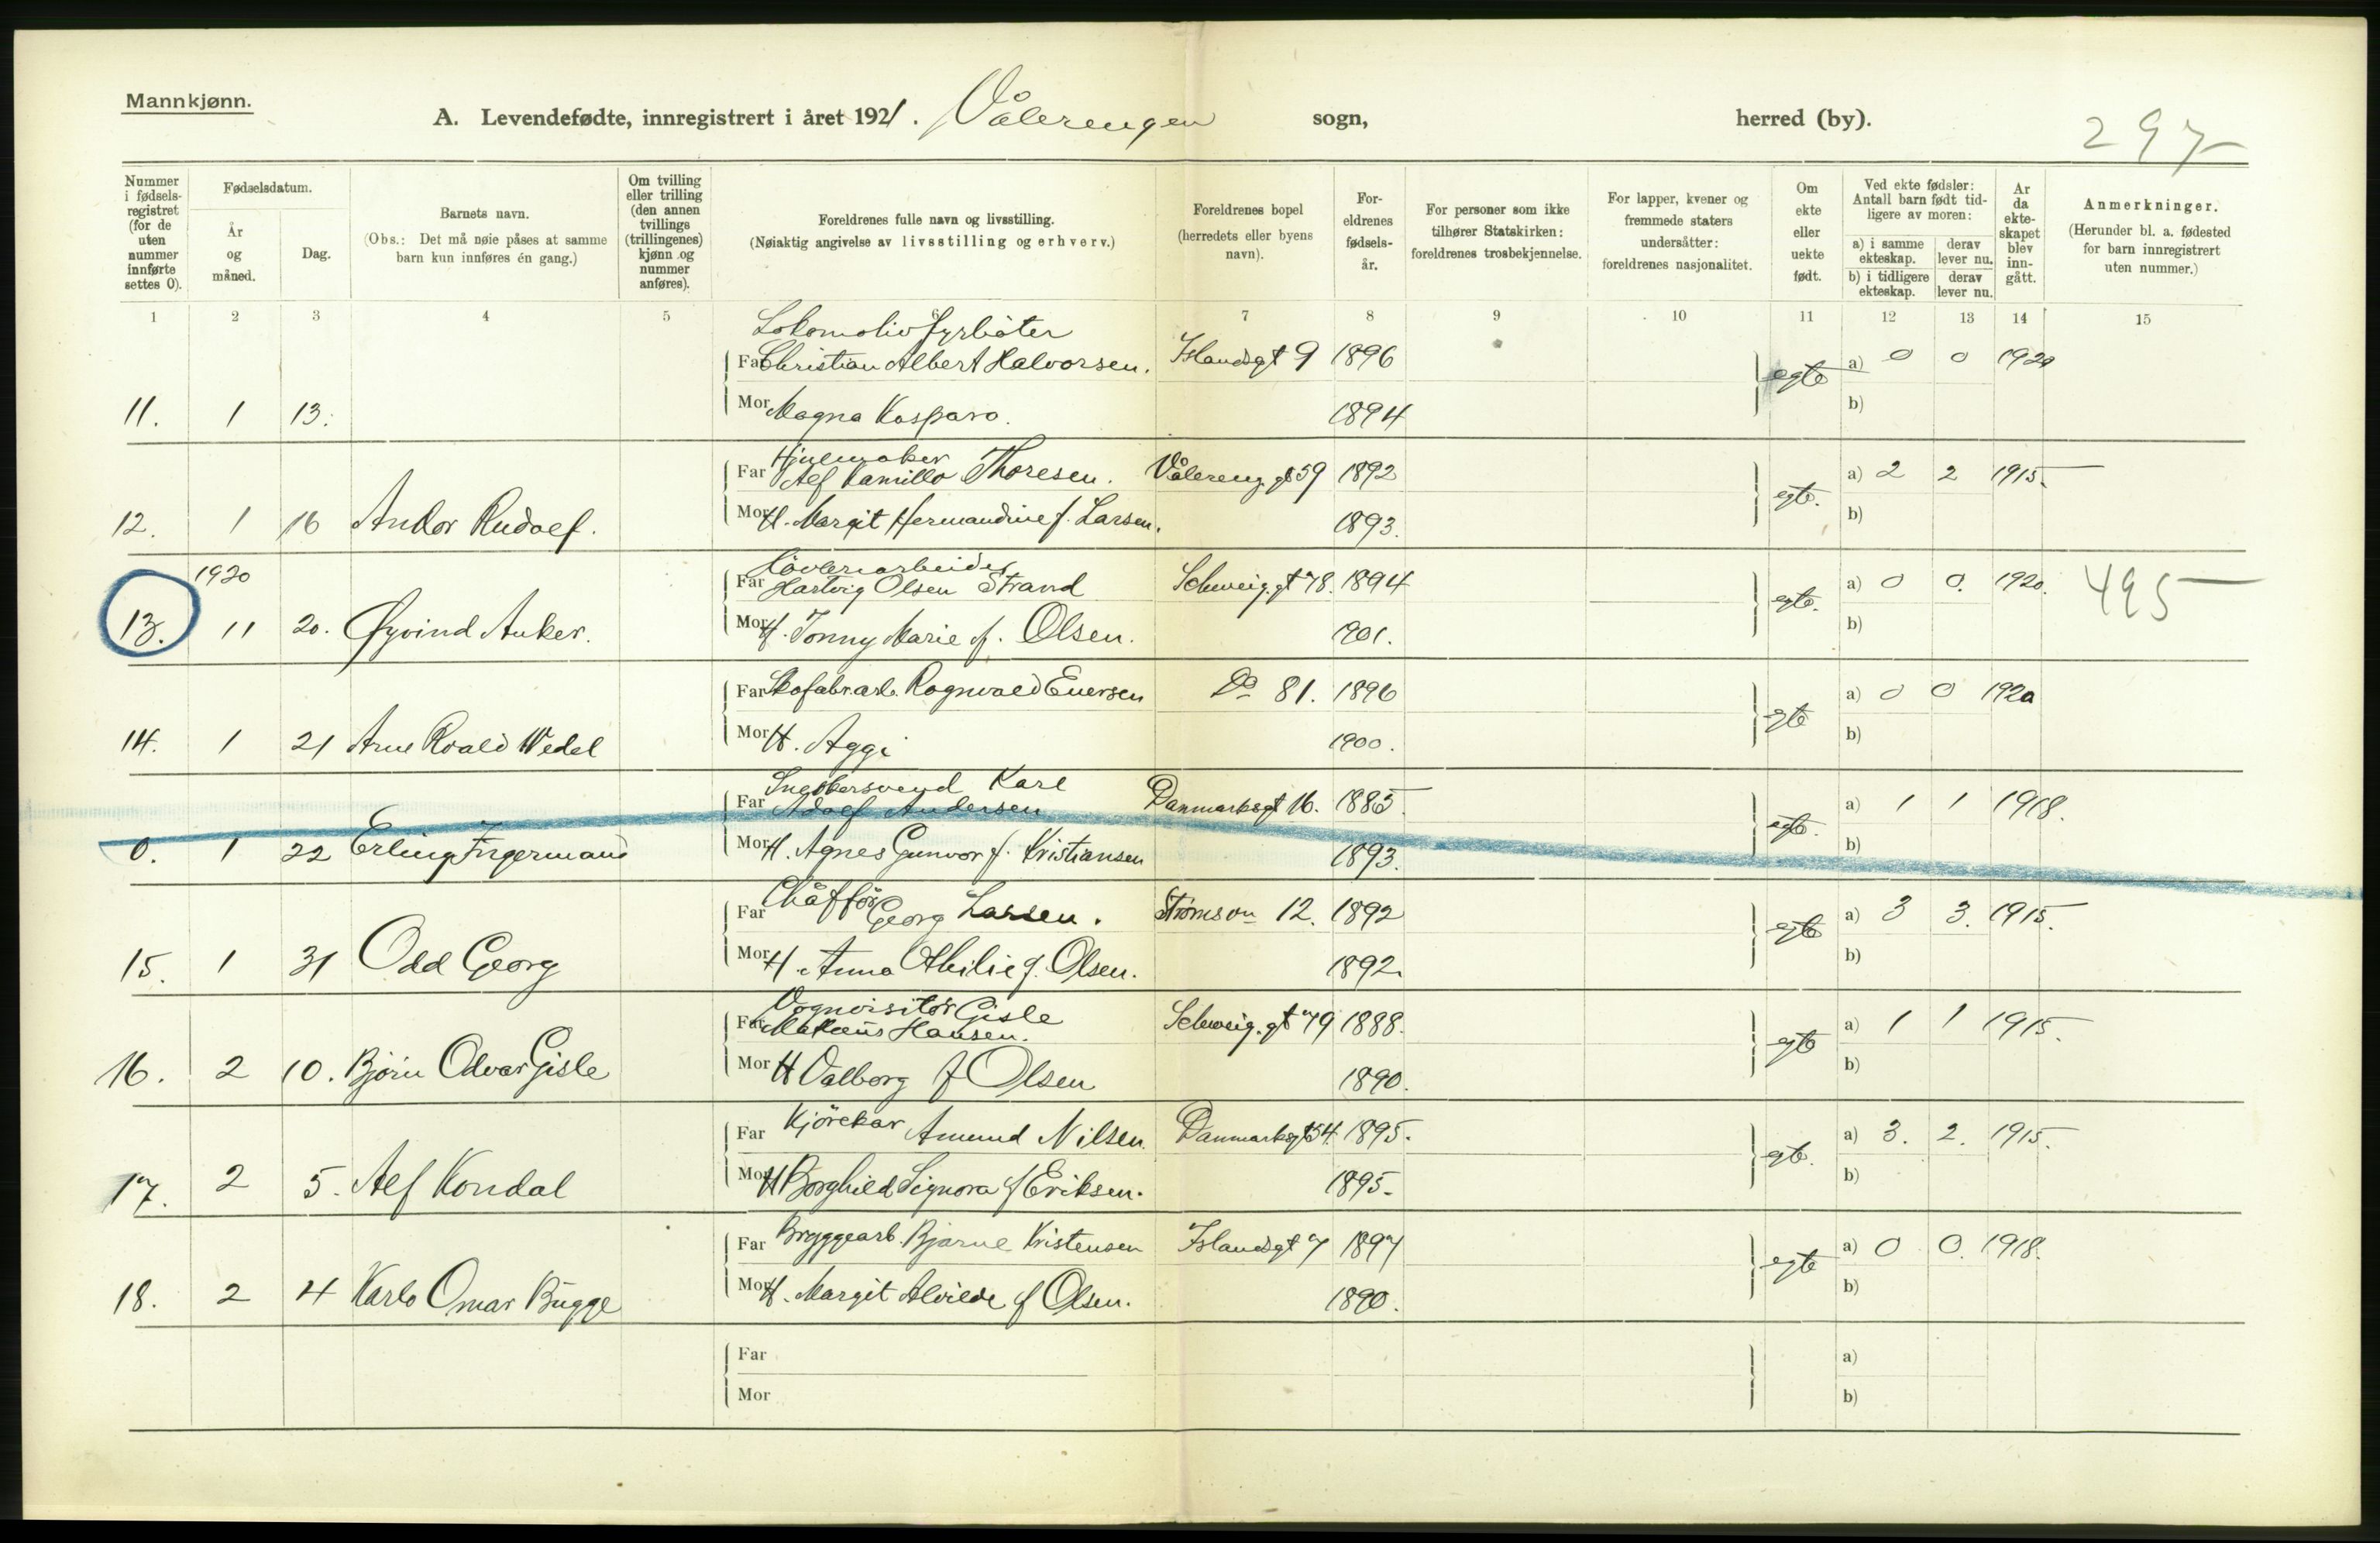 Mannkjønn.
A. Levendefødte, innregistrert i året 1921. Vålerengen sogn, herred (by). 297
Nummer i fødsels-registret (for de uten nummer innførte settes 0).
Fødselsdatum.
År og måned.
Dag.
Barnets navn.
(Obs.: Det må nøie påses at samme barn kun innføres én gang.)
Om tvilling eller trilling (den annen tvillings (trillingenes) kjønn og nummer anføres).
Foreldrenes fulle navn og livsstilling.
(Nøiaktig angivelse av livsstilling og erhverv.)
Foreldrenes bopel (herredets eller byens navn).
For-eldrenes fødsels-år.
For personer som ikke tilhører Statskirken: foreldrenes trosbekjennelse.
For lapper, kvener og fremmede staters undersåtter: foreldrenes nasjonalitet.
Om ekte eller uekte født.
Ved ekte fødsler: Antall barn født tid-ligere av moren:
a) i samme ekteskap. derav lever nu.
b) i tidligere ekteskap. derav lever nu.
Ar da ekte-skapet blev inn-gått.
Anmerkninger.
(Herunder bl. a. fødested for barn innregistrert uten nummer.)
1 2 3 4 5 6 7 8 9 10 11 12 13 14 15
Lokomotivfyrbøter
Far Christian Albert Halvorsen. Islandsgt 9 1896 egte a) 0 0 1920
11. 1 13. Mor Magna Kaspara. 1894 b)
Hjulmaker
Far Alf Kamillo Thoresen. Vålereng.gt 59 1892 egte. a) 2 2 1915.
12. 1 16 Andor Rudolf. Mor H. Margit Hermandine f. Larsen. 1893. b)
1920
Far Hartvig Olsen Strand Schweig.gt 78. 1894 egte. a) 0 0. 1920. 495
13. 11 20. Øyvind Anker. Mor H. Jonny Marie f. Olsen. 1901. b)
Far Skofabr.arb. Ragnvald Enersen Do 81. 1896 egte a) 0 0 1920
14. 1 21 Arne Roald Wedel Mor H. Aggi 1900. b)
Snekkersvend Karl
Far Adolf Andersen Danmarksgt 16. 1885. egte. a) 1 1 1918.
0. 1 22 Erling Ingermann Mor H. Agnes Gunvor f. Kristiansen 1893. b)
Chåffør
Far Georg Larsen. Strømsvn 12. 1892 egte a) 3 3. 1915.
15. 1 31 Odd Georg Mor H. Anna Othilie f. Olsen. 1892. b)
Vognvisitør Gisle
Far Hansen. Schweig.gt 79 1888. egte a) 1 1 1915.
16. 2 10. Bjørn Odvar Gisle Mor H Valborg f Olsen 1890. b)
Far Kjørekar Amund Nilsen. Danmarksgt 54. 1895. egte. a) 3. 2. 1915.
17. 2 5. Alf Kondal Mor H Borghild Signora f Eriksen. 1895. b)
Far Bryggearb. Bjarne Kristensen Islandsgt 7 1897 egte a) 0 0. 1918.
18. 2 4 Karlo Omar Bugge Mor H. Margit Alvilde f Olsen. 1890. b)
Far a)
Mor b)